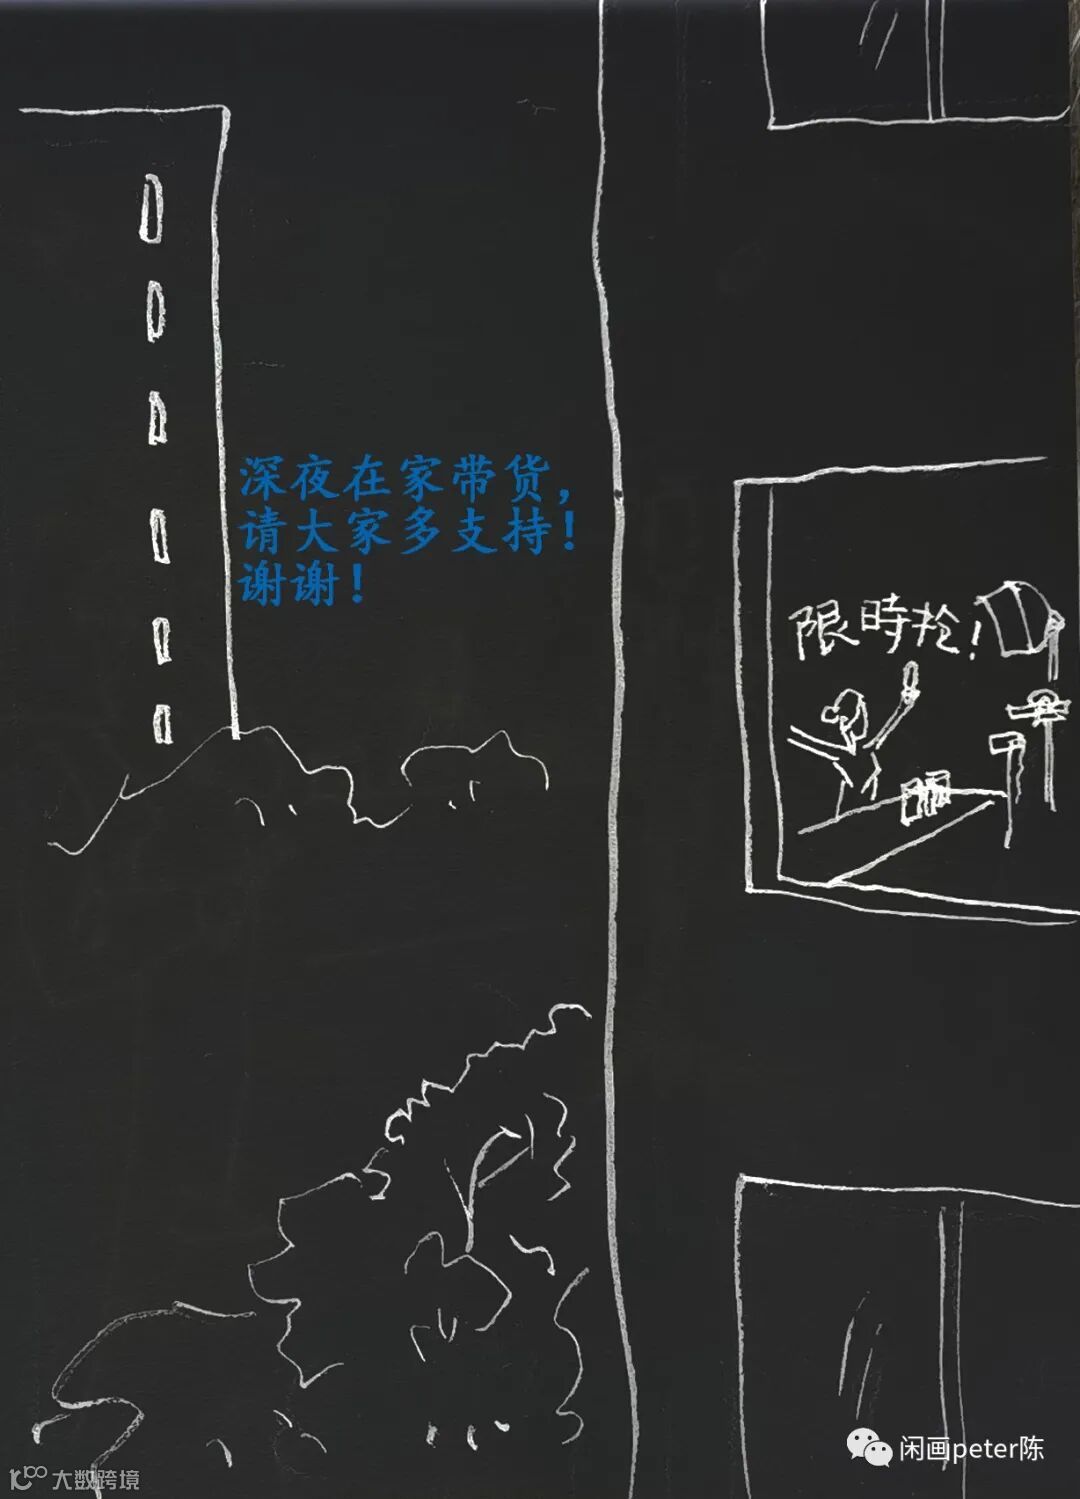 深夜在家带货，
请大家多支持！
谢谢！
限時抢！
闲画peter陈
大数跨境